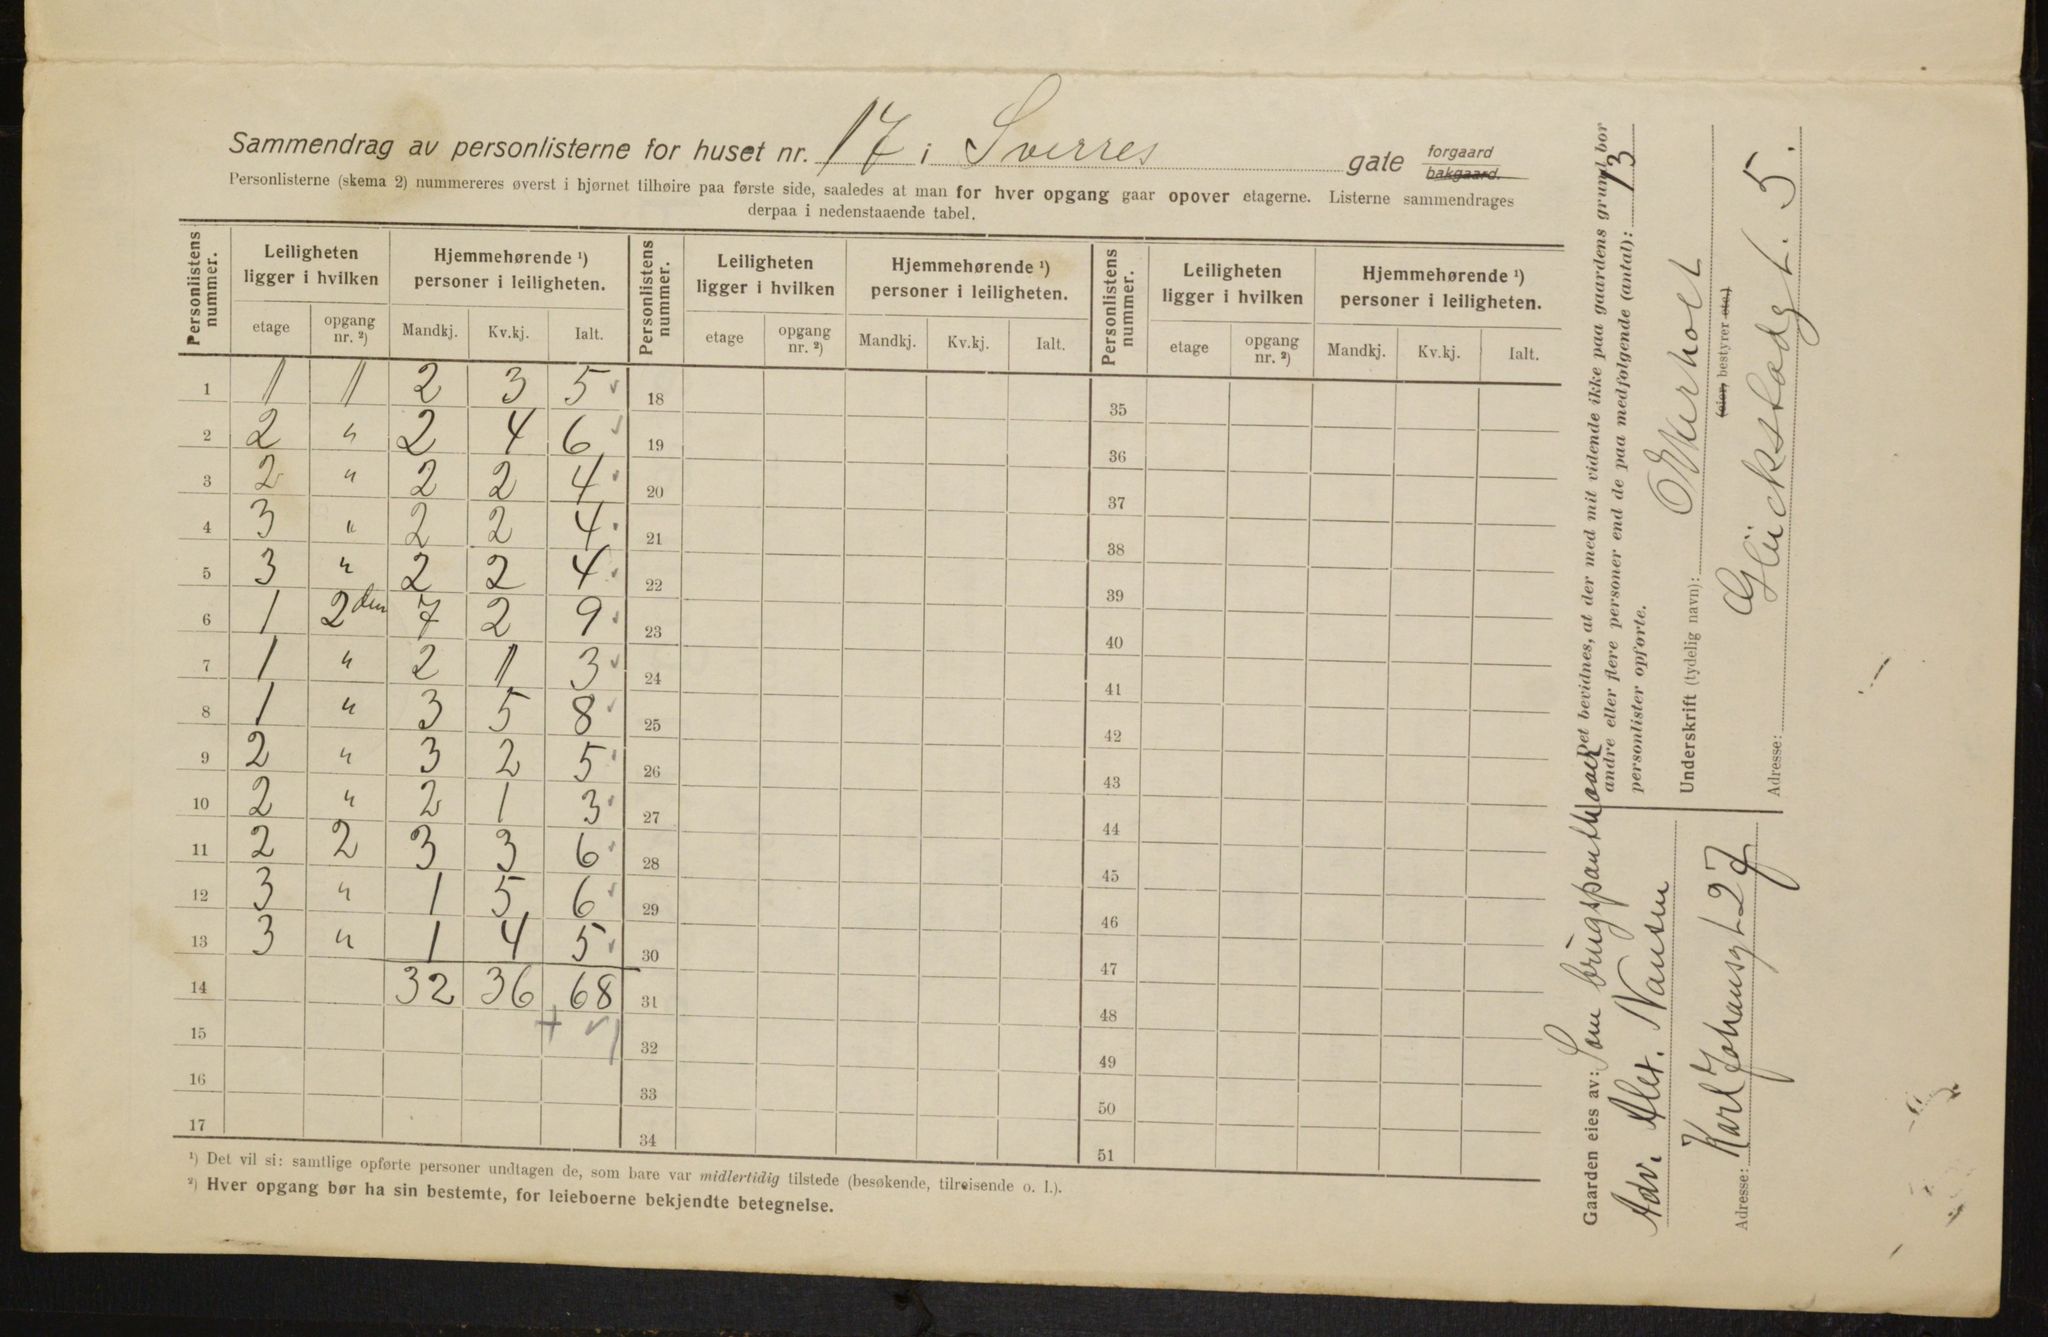 Sammendrag av personlisterne for huset nr. 17 i Sverres gate forgaard bakgaard.
Personlisterne (skema 2) nummereres øverst i hjørnet tilhøire paa første side, saaledes at man for hver opgang gaar opover etagerne. Listerne sammendrages
derpaa i nedenstaaende tabel.
Personlistens nummer. Leiligheten ligger i hvilken Hjemmehørende ¹) personer i leiligheten. Personlistens nummer. Leiligheten ligger i hvilken Hjemmehørende ¹) personer i leiligheten. Personlistens nummer. Leiligheten ligger i hvilken Hjemmehørende ¹) personer i leiligheten.
etage opgang nr. ²) Mandkj. Kv.kj. Ialt. etage opgang nr. ²) Mandkj. Kv.kj. Ialt. etage opgang nr. ²) Mandkj. Kv.kj. Ialt.
1 1 1 2 3 5 18 35
2 2 " 2 4 6 19 36
3 2 " 2 2 4 20 37
4 3 " 2 2 4 21 38
5 3 " 2 2 4 22 39
6 1 2den 7 2 9 23 40
7 1 " 2 1 3 24 41
8 1 " 3 5 8 25 42
9 2 " 3 2 5 26 43
10 2 " 2 1 3 27 44
11 2 2 3 3 6 28 45
12 3 " 1 5 6 29 46
13 3 " 1 4 5 30 47
14 32 36 68 31 48
15 32 49
16 33 50
17 34 51
¹) Det vil si: samtlige opførte personer undtagen de, som bare var midlertidig tilstede (besøkende, tilreisende o. l.).
²) Hver opgang bør ha sin bestemte, for leieboerne bekjendte betegnelse.
Gaarden eies av: Som brugspanthaver
Adv. Alex. Nansen
Adresse: Karl Johansgt 27
Det bevidnes, at der med mit vidende ikke paa gaardens grund bor
andre eller flere personer end de paa medfølgende (antal): 13
personlister opførte.
Underskrift (tydelig navn):
(eier, bestyrer etc.)
Adresse: Glückstadgt. 5.